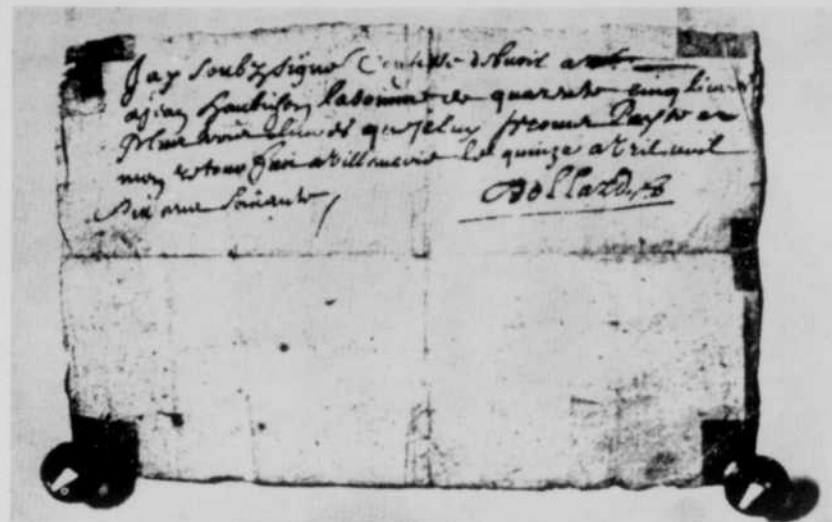 Jay soubzsigné Confesse debvoir a
a Jean haubichon la somme de quarente cinq livres
plus trois livres que je luy promes Payer a
mon retour faict a Villemarie le quinze avril mil
Six cens soixante,
Dollard